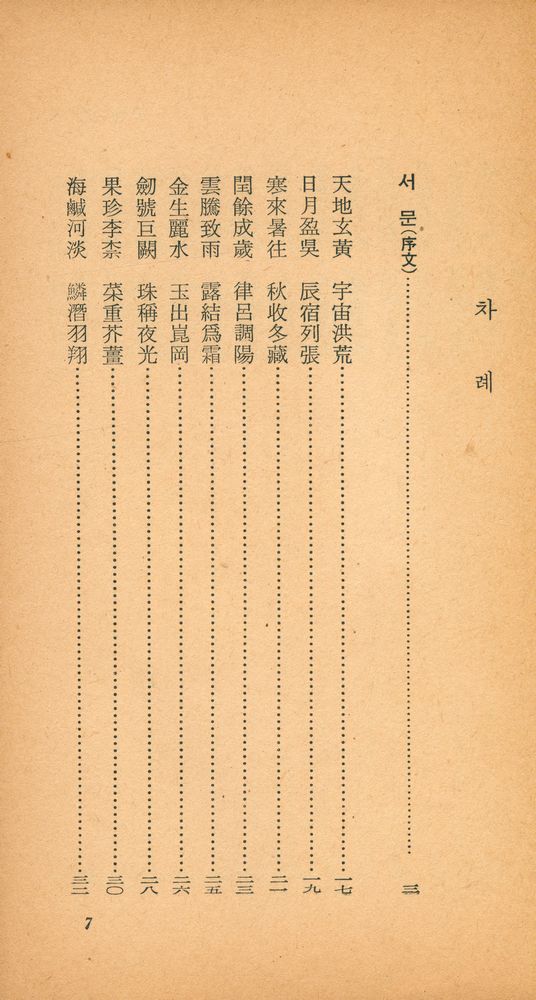 차례
서문(序文)……三
天地玄黃 宇宙洪荒……一七
日月盈昃 辰宿列張……一九
寒來暑往 秋收冬藏……二一
閏餘成歲 律呂調陽……二三
雲騰致雨 露結爲霜……二五
金生麗水 玉出崑岡……二六
劒號巨闕 珠稱夜光……二八
果珍李柰 菜重芥薑……三〇
海鹹河淡 鱗潛羽翔……三二
7